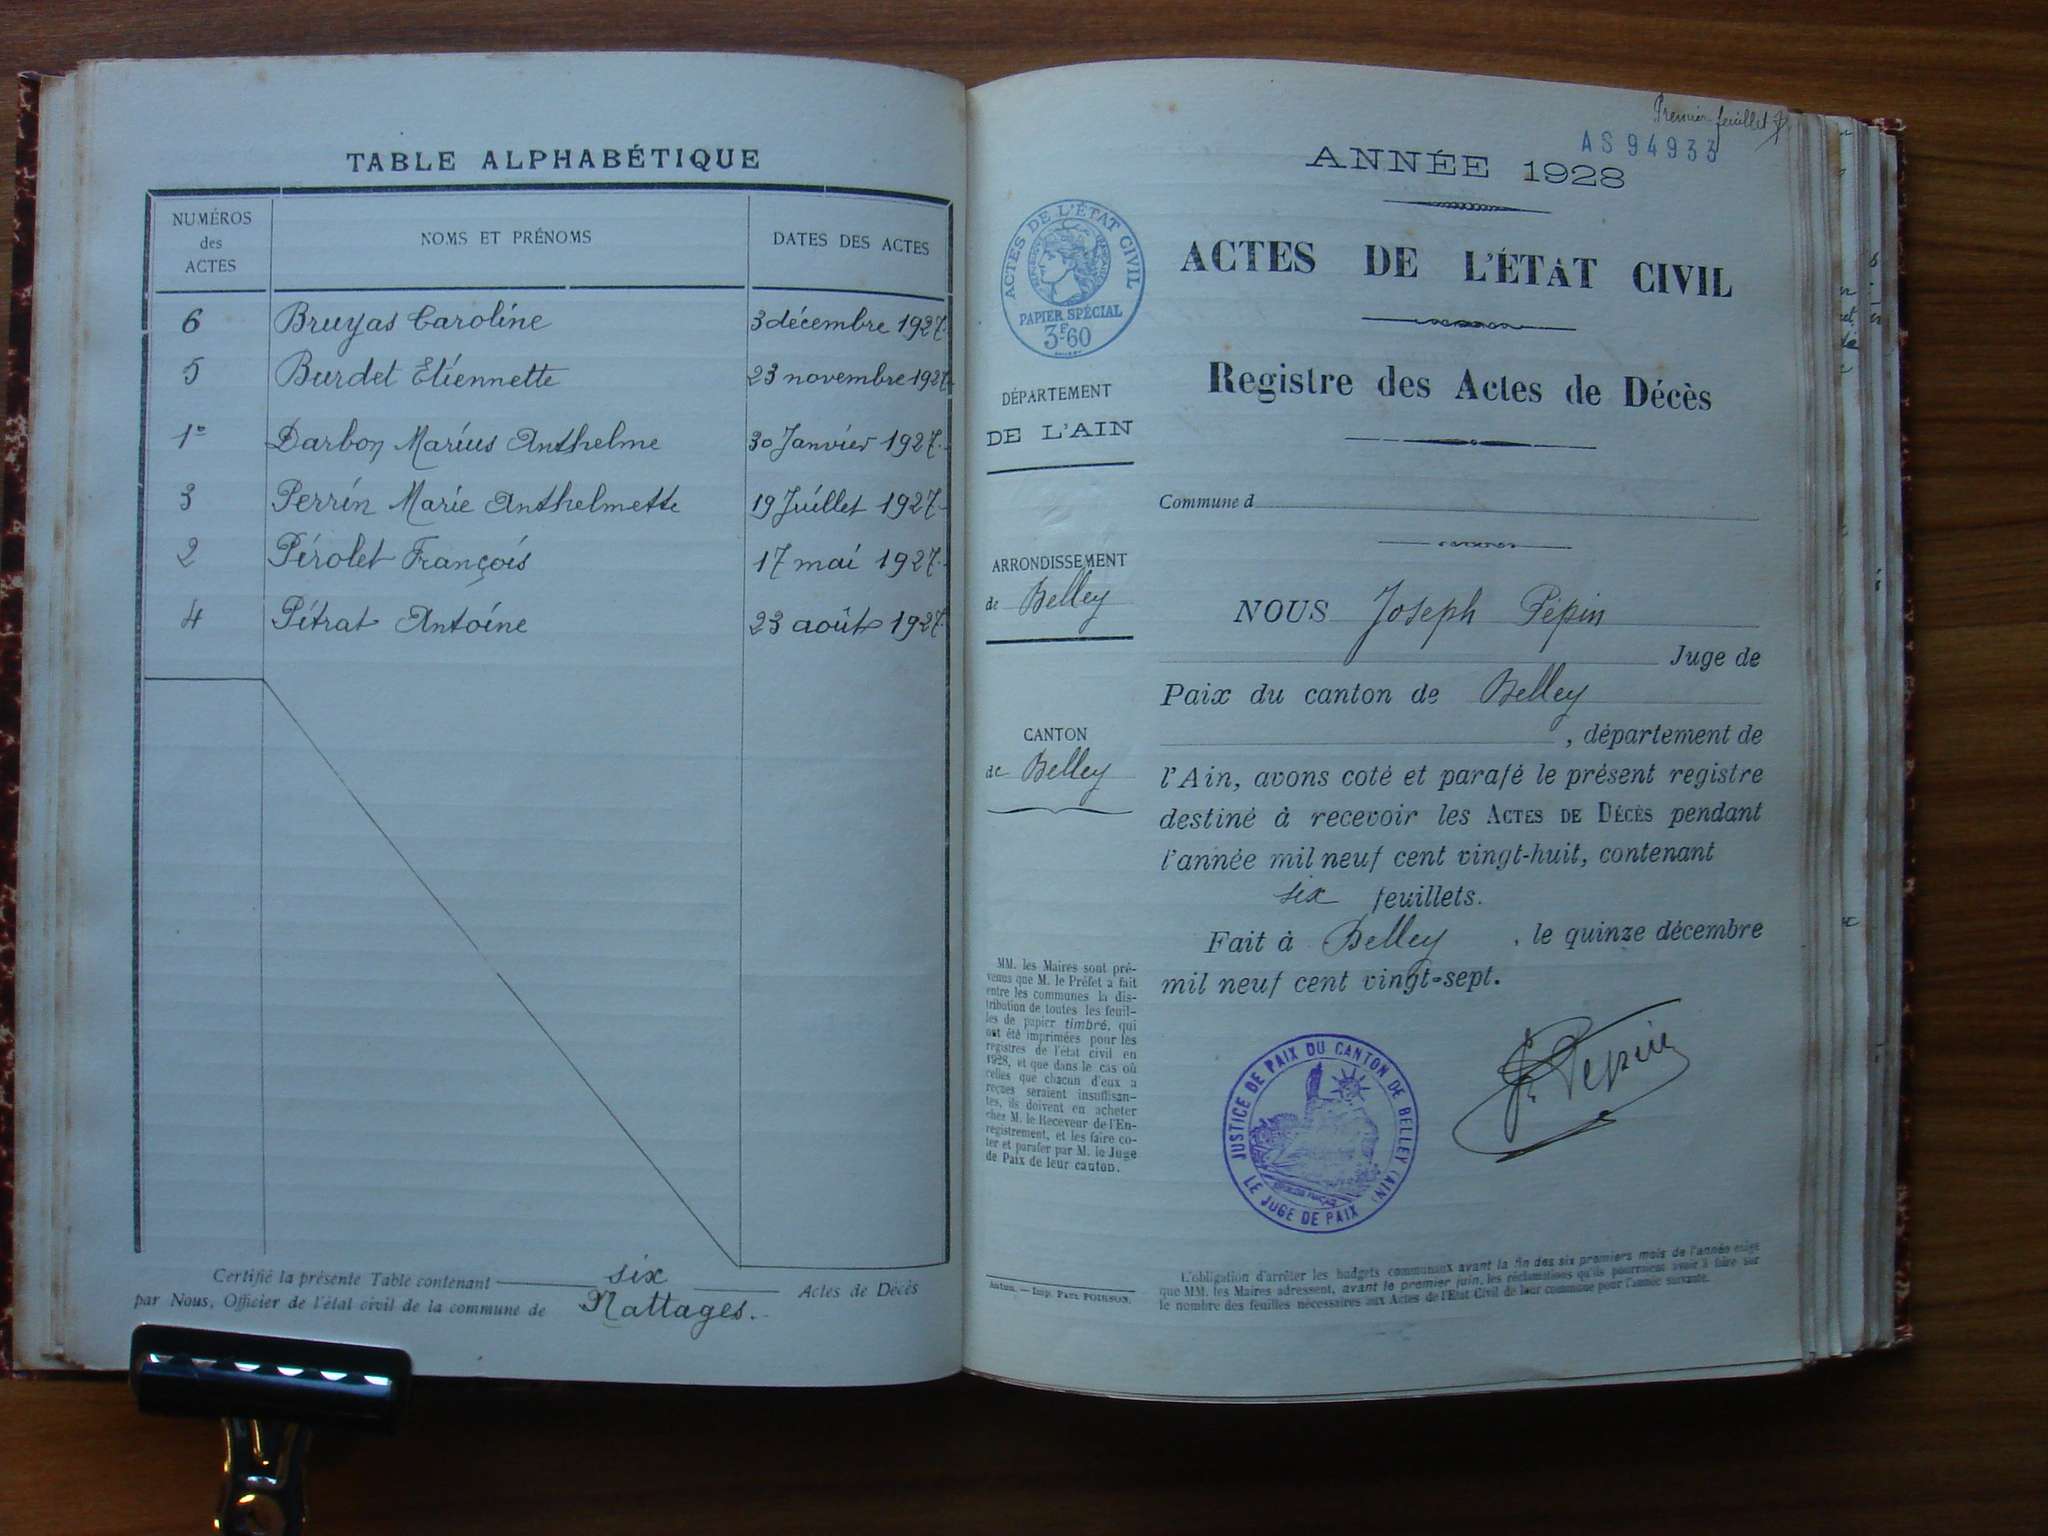 TABLE ALPHABÉTIQUE
NUMÉROS
des
ACTES
NOMS ET PRÉNOMS
DATES DES ACTES
6 Bruyas Caroline 3 décembre 1927.
5 Burdet Etiennette 23 novembre 1927.
1e Darbon Marius Anthelme 30 Janvier 1927.
3 Perrin Marie Anthelmette 19 Juillet 1927.
2 Pérolet François 17 mai 1927.
4 Pétrat Antoine 23 août 1927.
Certifié la présente Table contenant six Actes de Décès
par Nous, Officier de l'état civil de la commune de Nattages.
Premier feuillet
AS 94933
ANNÉE 1928
ACTES DE L'ÉTAT CIVIL
PAPIER SPÉCIAL
3F60
ACTES DE L'ÉTAT CIVIL
Registre des Actes de Décès
DÉPARTEMENT
DE L'AIN
ARRONDISSEMENT
de Belley
CANTON
de Belley
MM. les Maires sont pré-
venus que M. le Préfet a fait
entre les communes la dis-
tribution de toutes les feuil-
les de papier timbré, qui
ont été imprimées pour les
registres de l'état civil en
1928, et que dans le cas où
celles que chacun d'eux a
reçues seraient insuffisan-
tes, ils doivent en acheter
chez M. le Receveur de l'En-
registrement, et les faire co-
ter et parafer par M. le Juge
de Paix de leur canton.
Autun. — Imp. Paul POISSON.
Commune d
NOUS Joseph Pépin
Juge de
Paix du canton de Belley
, département de
l'Ain, avons coté et parafé le présent registre
destiné à recevoir les ACTES DE DÉCÈS pendant
l'année mil neuf cent vingt-huit, contenant
six feuillets.
Fait à Belley, le quinze décembre
mil neuf cent vingt-sept.
JUSTICE DE PAIX DU CANTON DE BELLEY (AIN)
LE JUGE DE PAIX
J. Pépin
L'obligation d'arrêter les budgets communaux avant la fin des six premiers mois de l'année exige
que MM. les Maires adressent, avant le premier juin, les réclamations qu'ils pourraient avoir à faire sur
le nombre des feuilles nécessaires aux Actes de l'État Civil de leur commune pour l'année suivante.